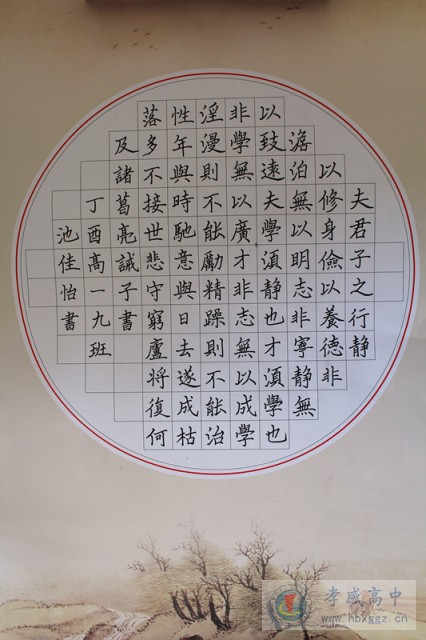 夫君子之行静
以修身儉以養德非
澹泊無以明志非寧静無
以致遠夫學湏静也才湏學也
非學無以廣才非志無以成學
淫漫則不能勵精躁則不能治
性年與時馳意與日去遂成枯
落多不接世悲守窮廬將復何
及諸葛亮誡子書
丁酉高一九班
池佳怡書
孝感高中
www.hbxggz.cn